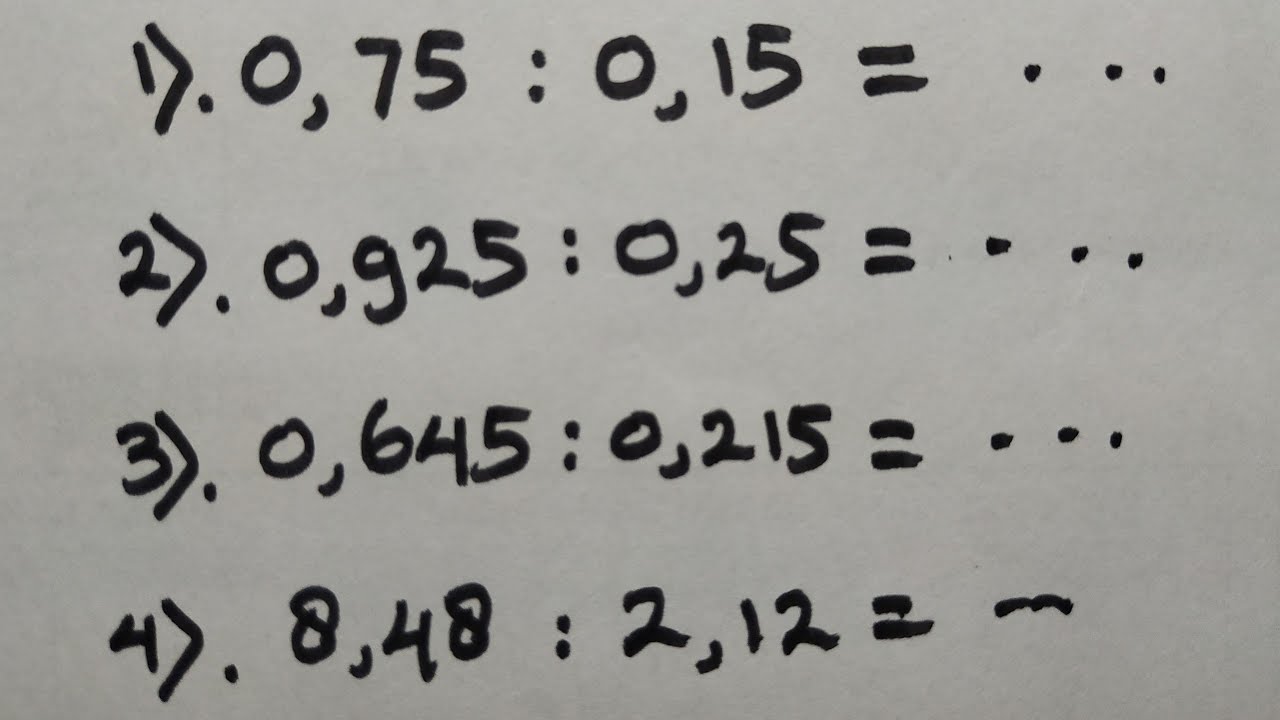 1). 0,75 : 0,15 = ...
2). 0,925 : 0,25 = ...
3). 0,645 : 0,215 = ...
4). 8,48 : 2,12 = ~